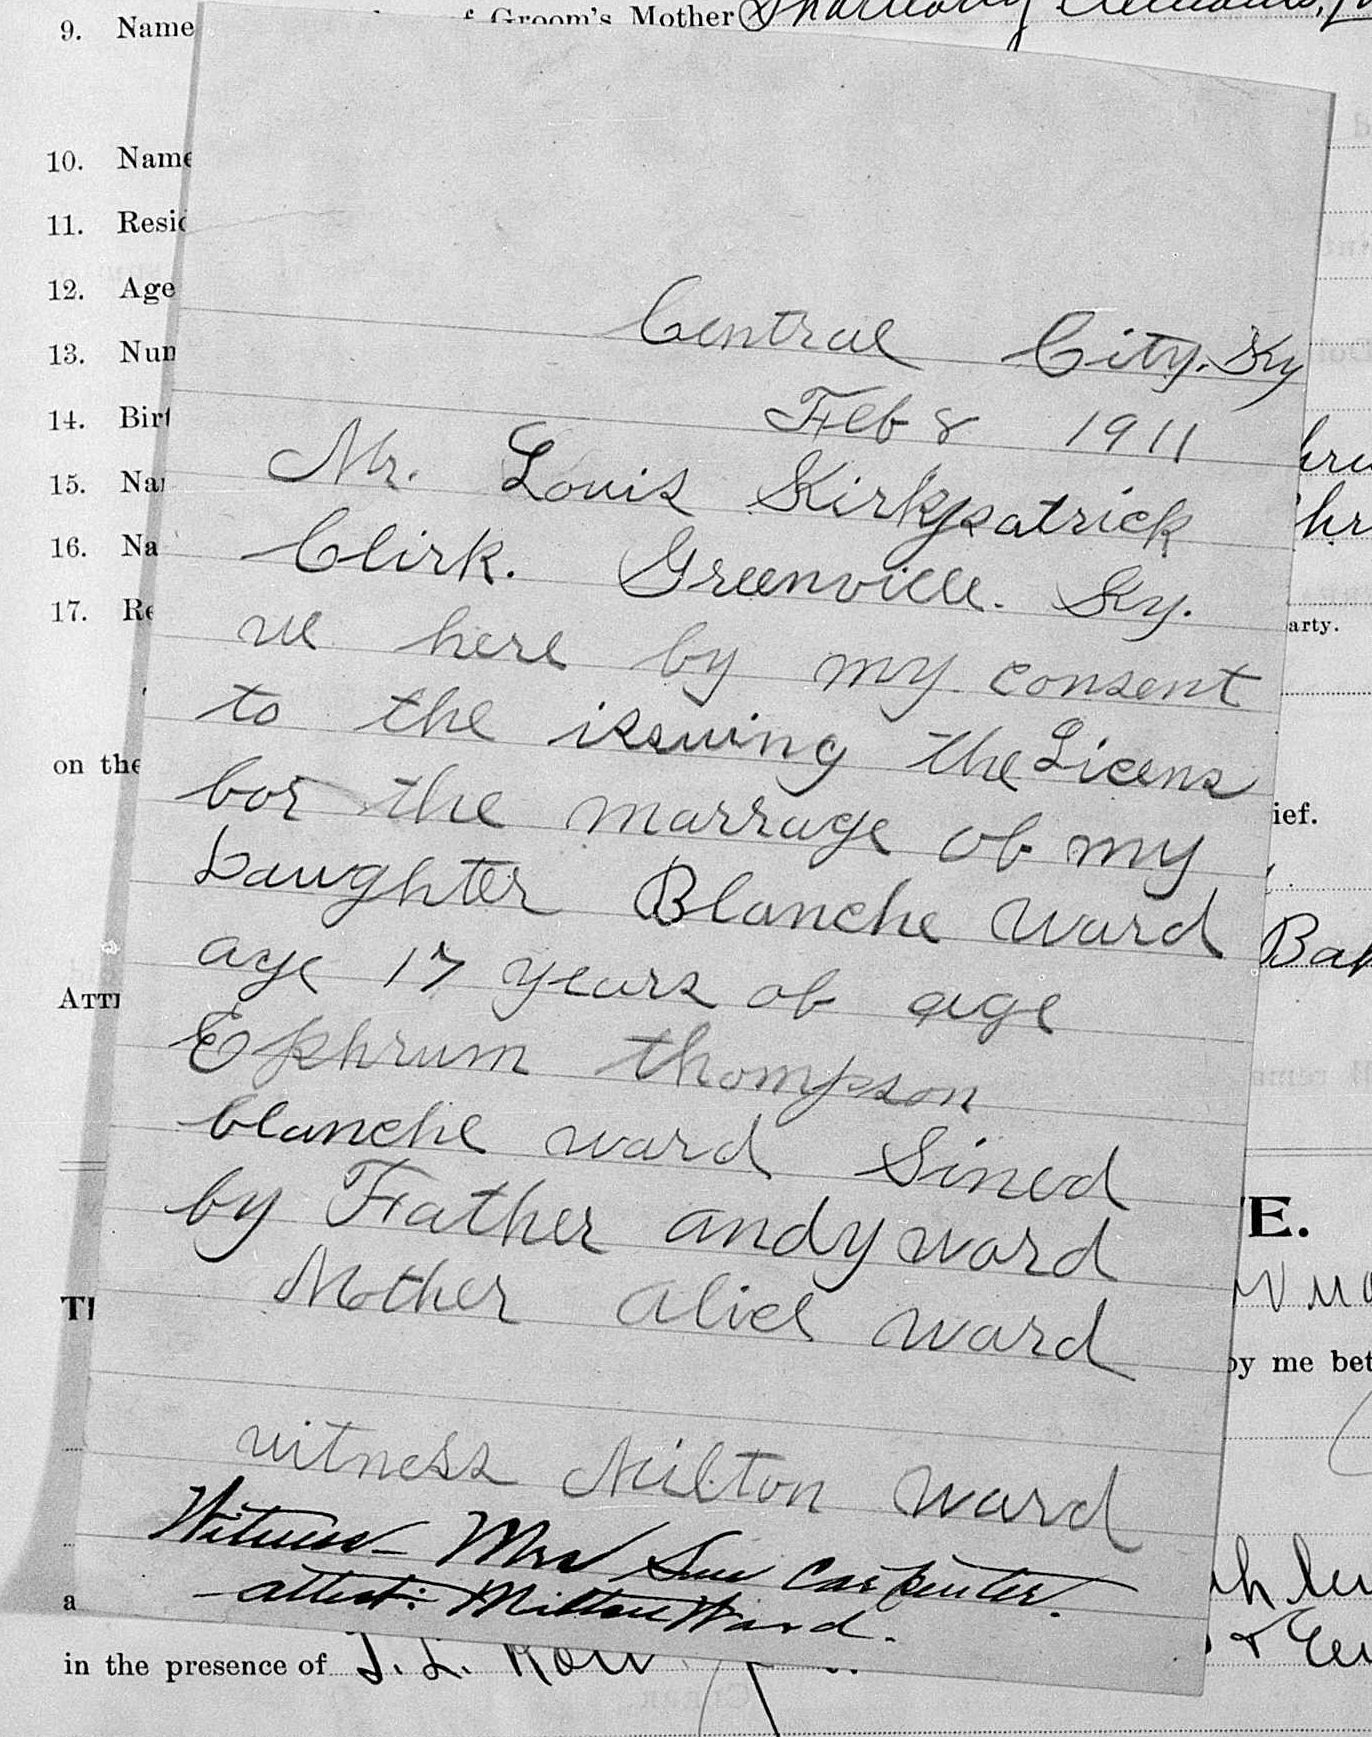 9. Name of Groom's Mother
10. Name
11. Resid
12. Age
13. Num
14. Birt
15. Nam
16. Na
17. Re
arty.
on the
ief.
Central City. Ky
Feb 8 1911
Mr. Louis Kirkpatrick
Clirk. Greenville. Ky.
we here by my consent
to the issuing the Licens
for the marrage of my
Daughter Blanche Ward
age 17 years of age
Ephrum thompson
blanche ward Sined
by Father andy ward
Mother alice ward
witness Milton ward
Witness - Mrs Sue Carpenter.
attest: Milton Ward.
ATTE
E.
TH
by me bet
a
in the presence of J. L. Row